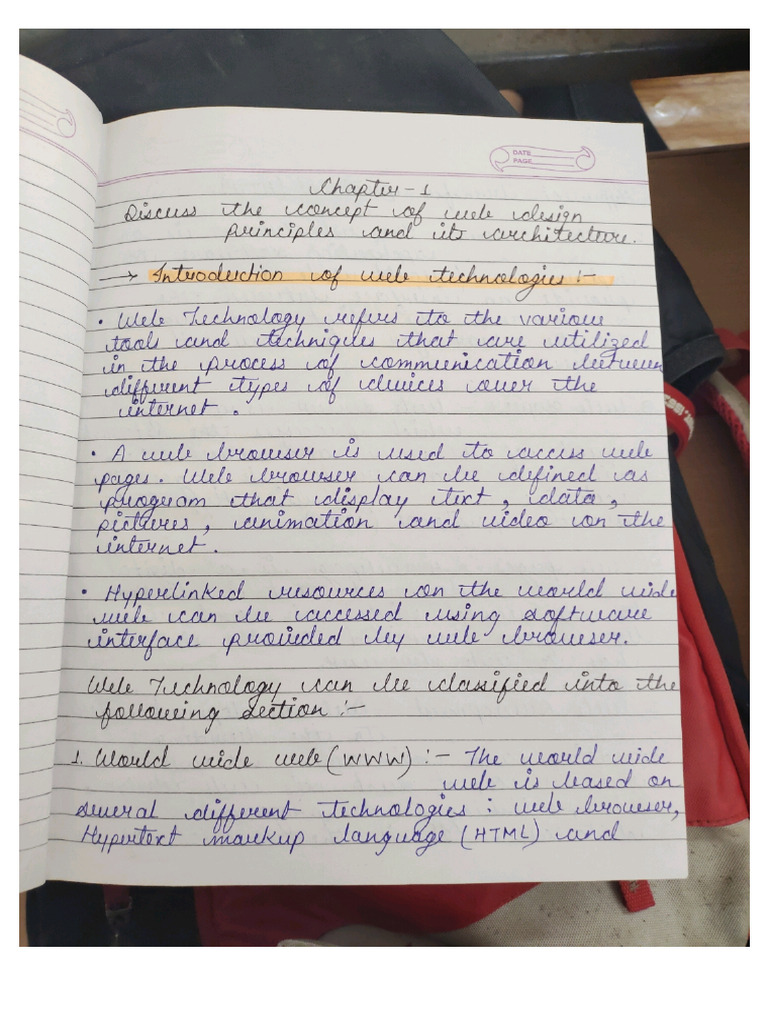 DATE
PAGE
Chapter-1
Discuss the concept of web design
principles and its architecture.
→ Introduction of web technologies :-
• Web Technology refers to the various
tools and techniques that are utilized
in the process of communication between
different types of devices over the
internet.
• A web browser is used to access web
pages. Web browser can be defined as
program that display text, data,
pictures, animation and video on the
internet.
• Hyperlinked resources on the world wide
web can be accessed using software
interface provided by web browser.
Web Technology can be classified into the
following section :-
1. World wide web (WWW) :- The world wide
web is based on
several different technologies : web browser,
Hypertext markup language (HTML) and